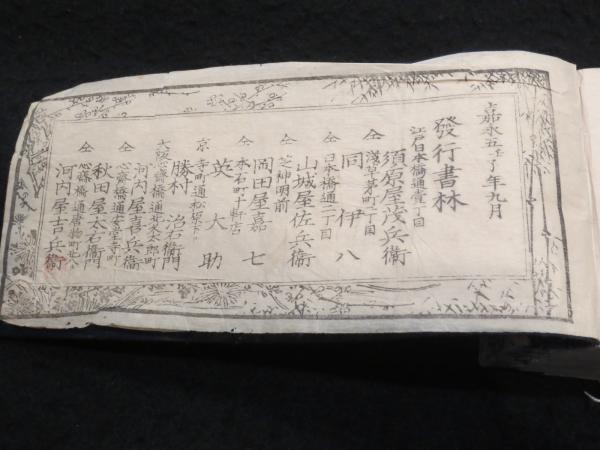 嘉永五壬子年九月
發行書林
江戸日本橋通壹丁目
須原屋茂兵衞
仝 淺草茅町二丁目
同 伊八
仝 日本橋通二丁目
山城屋佐兵衞
仝 芝神明前
岡田屋嘉七
仝 本石町十軒店
英大助
京 寺町通松原下ル
勝村治右衞門
大阪心齋橋通北久太郎町
河内屋喜兵衞
仝 心齋橋通安堂寺町
秋田屋太右衞門
仝 心齋橋通
河内屋吉兵衞